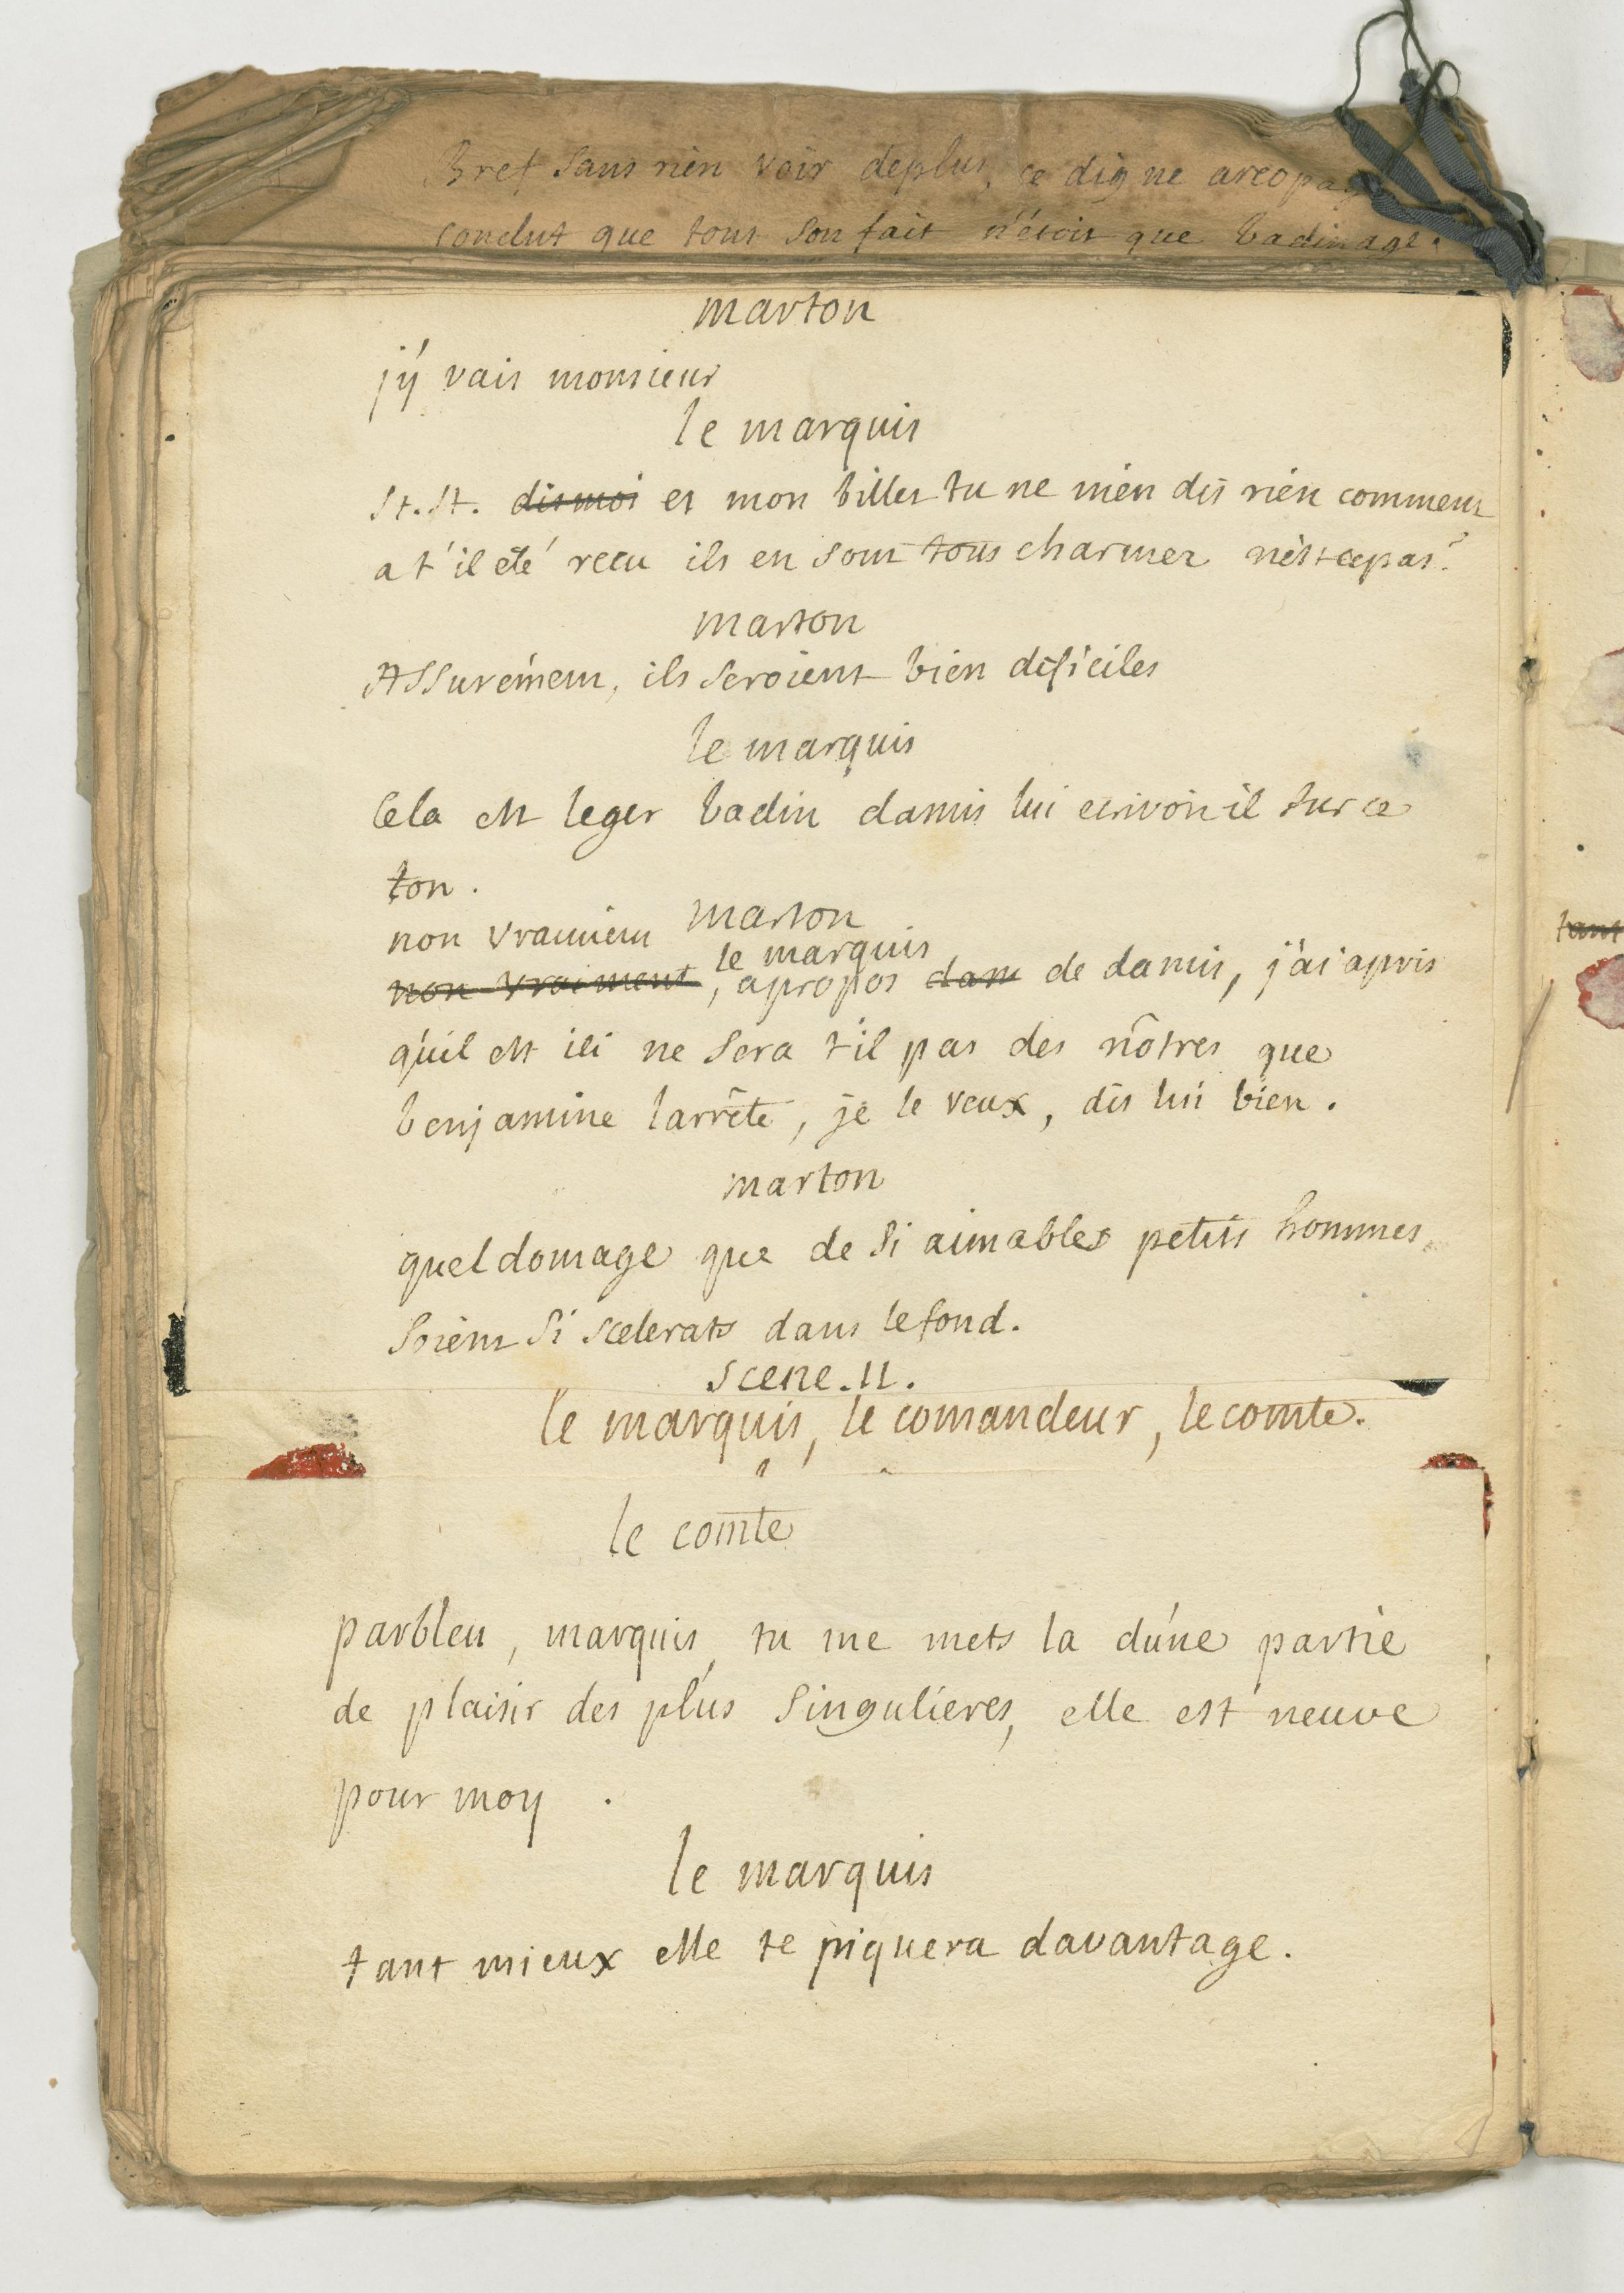 Bref sans rien voir deplus, ce digne areopage
conclut que tout son fait n'étoit que badinage.
marton
j'ÿ vais monsieur
le marquis
st. st. dis moi et mon billet tu ne m'en dis rien comment
a t'il eté recu ils en sont tous charmez n'est-cepas?
marton
Assurément, ils seroient bien dificiles
le marquis
Cela est leger badin damis lui ecrivoit il sur ce
ton.
marton
non vraiment
le marquis
non vraiment, apropos dam de damis, j'ai apris
qu'il est ici ne sera t'il pas des nôtres que
benjamine l'arrête, je le veux, dis lui bien.
marton
quel domage que de si aimables petits hommes
soient si scelerats dans le fond.
scene. 11.
le marquis, le comandeur, le comte.
le comte
parbleu, marquis, tu me mets la d'une partie
de plaisir des plus singulieres, elle est neuve
pour moy.
le marquis
tant mieux elle te piquera davantage.
tant